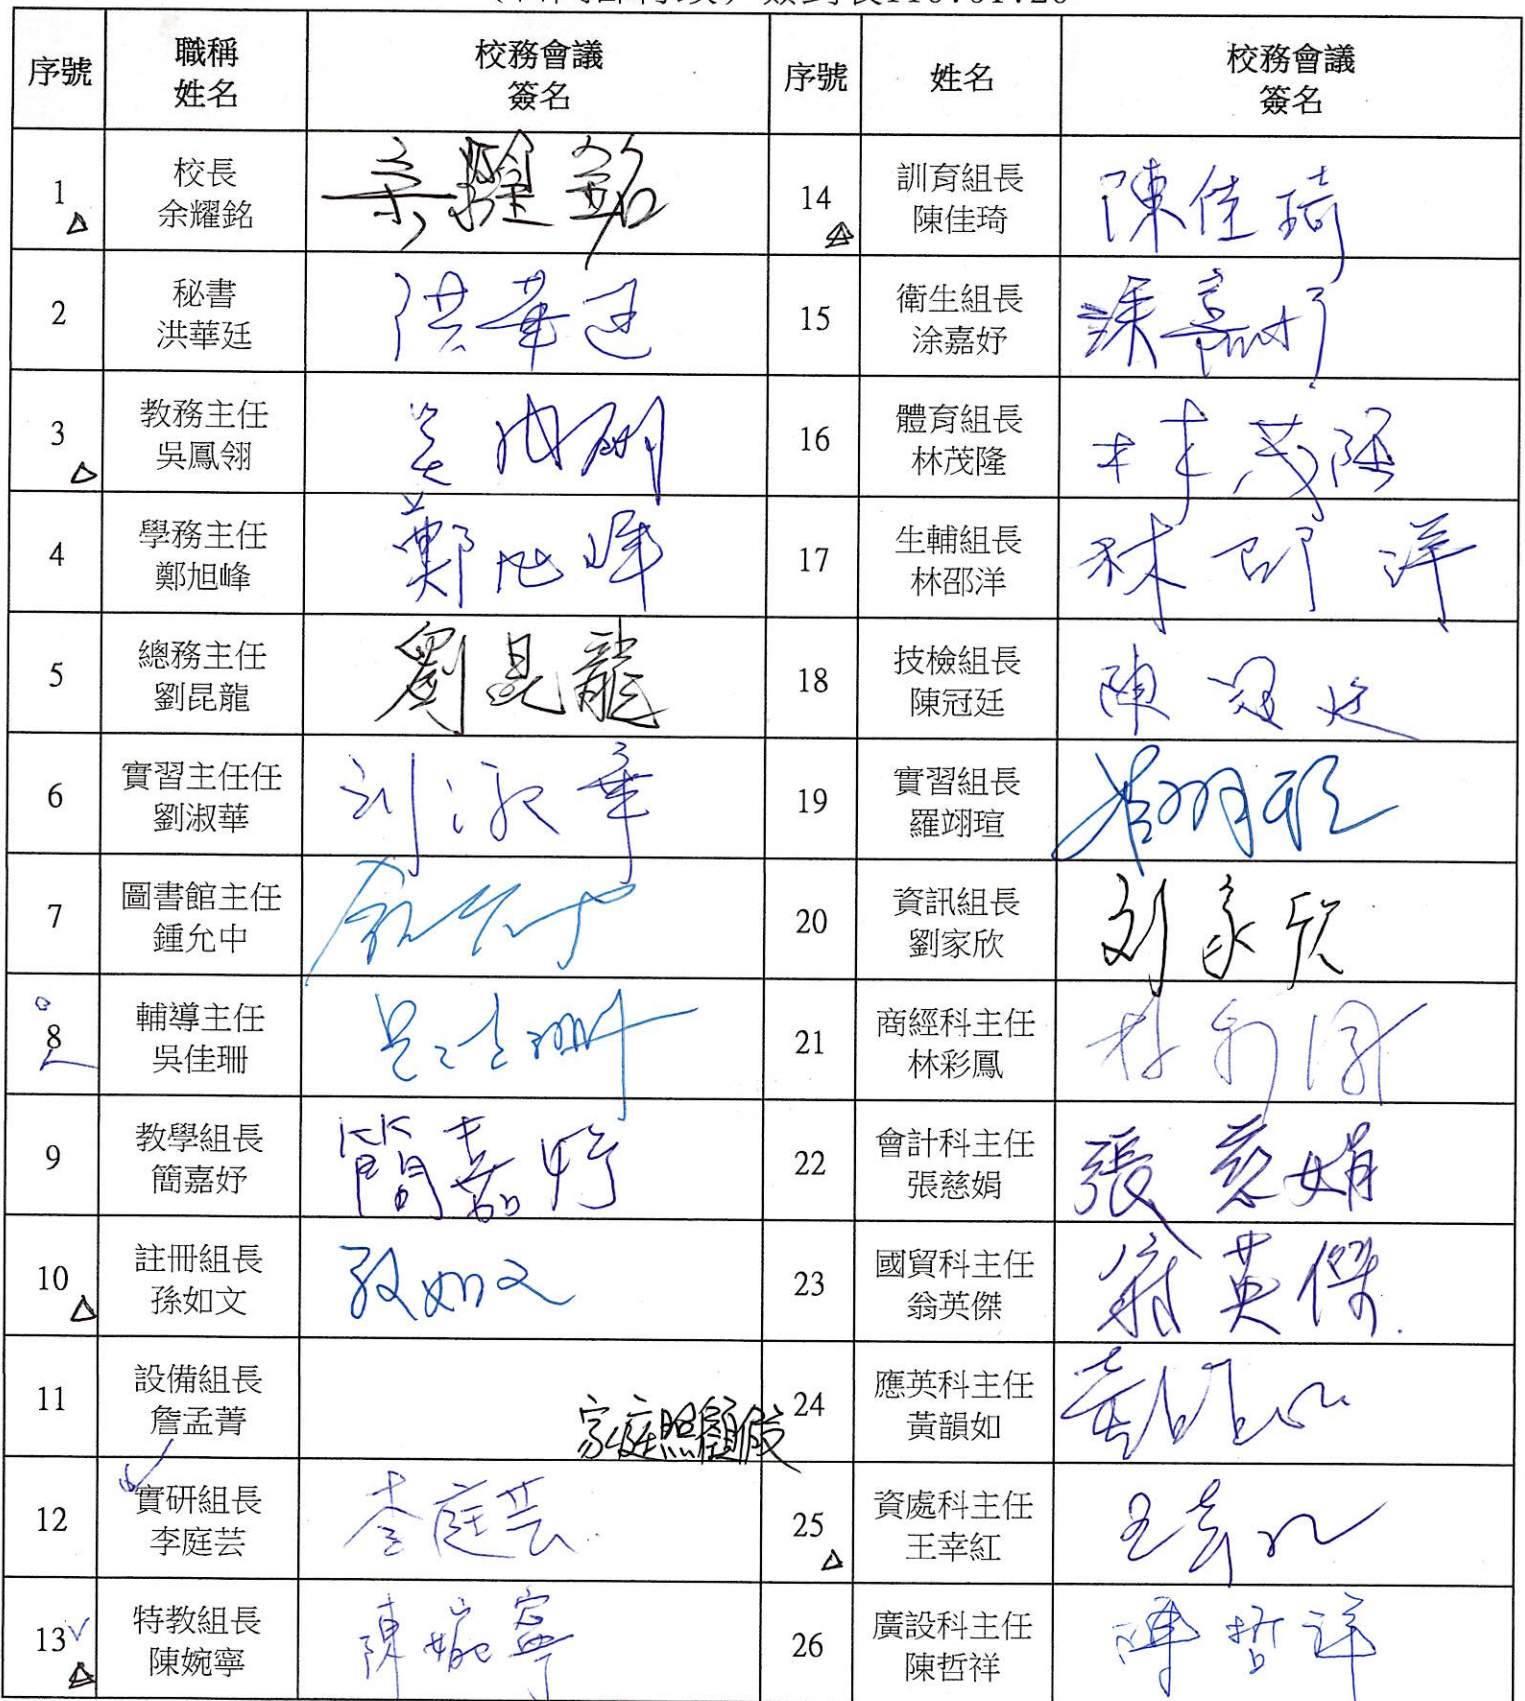 簽到表110.01.20
序號 職稱 姓名 校務會議 簽名 序號 姓名 校務會議 簽名
1 校長 余耀銘 余耀銘 14 訓育組長 陳佳琦 陳佳琦
2 秘書 洪華廷 洪華廷 15 衛生組長 涂嘉妤 涂嘉妤
3 教務主任 吳鳳翎 吳鳳翎 16 體育組長 林茂隆 林茂隆
4 學務主任 鄭旭峰 鄭旭峰 17 生輔組長 林邵洋 林邵洋
5 總務主任 劉昆龍 劉昆龍 18 技檢組長 陳冠廷 陳冠廷
6 實習主任任 劉淑華 刘淑華 19 實習組長 羅翊瑄
7 圖書館主任 鍾允中 20 資訊組長 劉家欣 刘家欣
8 輔導主任 吳佳珊 吳佳珊 21 商經科主任 林彩鳳 林彩鳳
9 教學組長 簡嘉妤 簡嘉妤 22 會計科主任 張慈娟 張慈娟
10 註冊組長 孫如文 孫如文 23 國貿科主任 翁英傑 翁英傑
11 設備組長 詹孟菁 家庭照顧假 24 應英科主任 黃韻如 黃韻如
12 實研組長 李庭芸 李庭芸 25 資處科主任 王幸紅 王幸紅
13 特教組長 陳婉寧 陳婉寧 26 廣設科主任 陳哲祥 陳哲祥